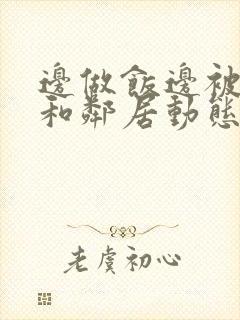 邊做飯邊被
和鄰居動態
老虞初心